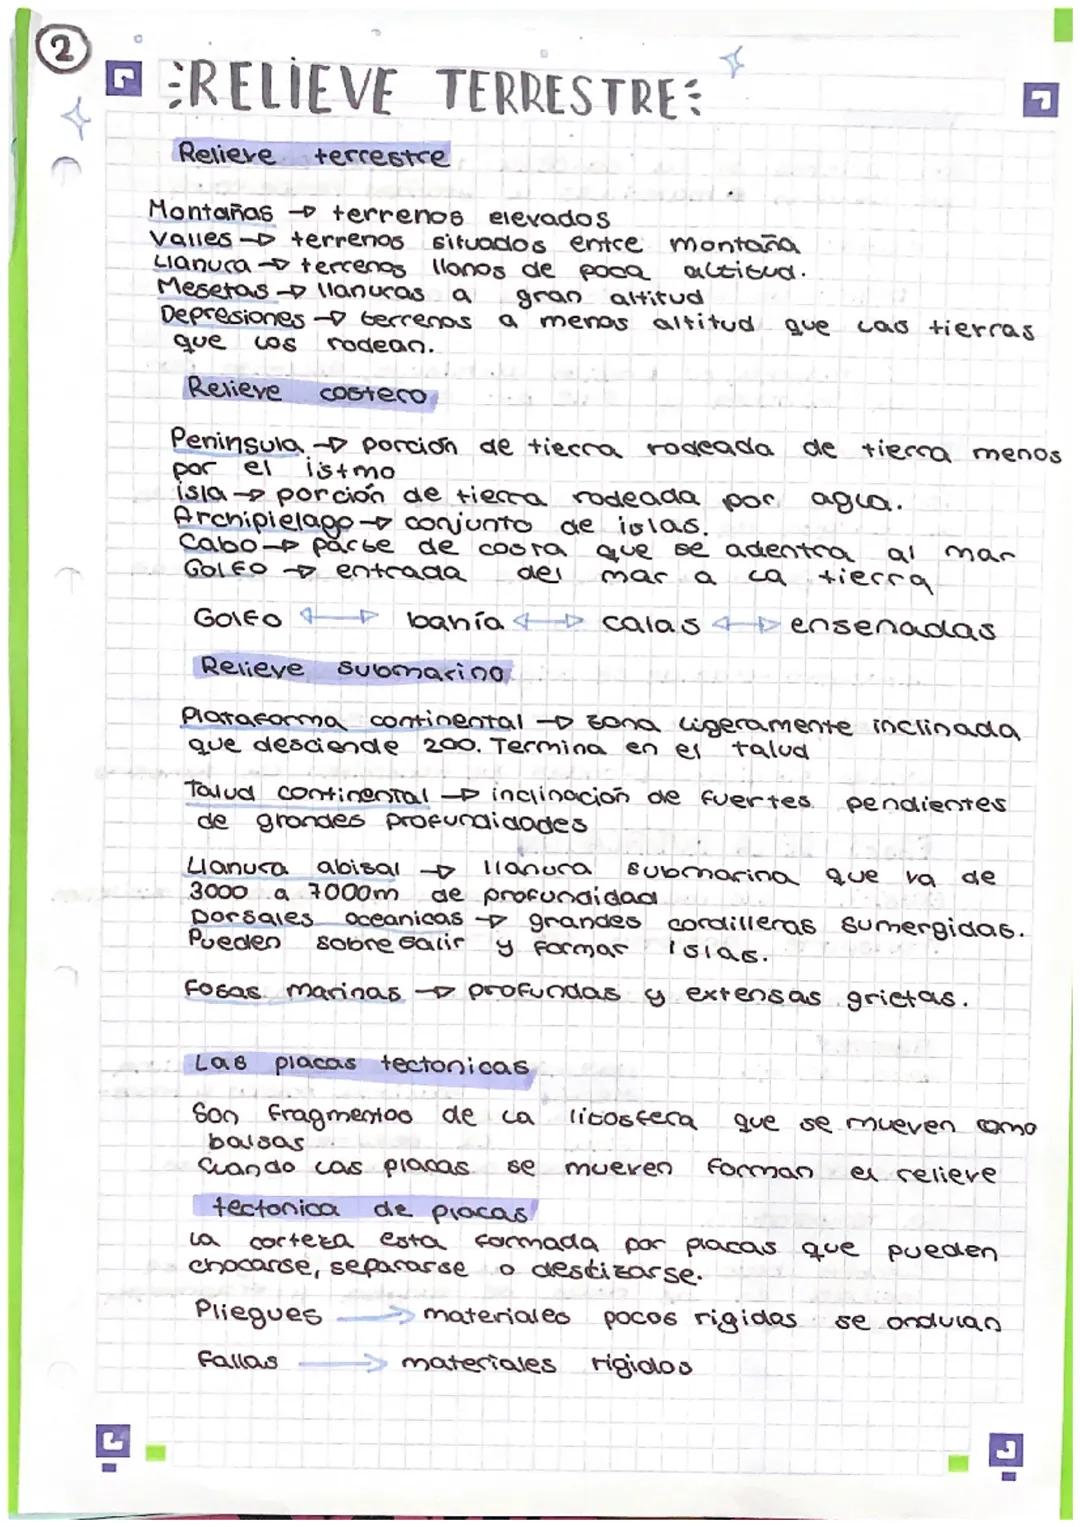 2
RELIEVE TERRESTRE
Relieve terrestre
Montañas → terrenos elevados
Valles → terrenos situados entre montaña
Llanura → terrenos llanos de poca altitud.
Mesetas → llanuras a gran altitud
Depresiones → terrenos a menos altitud que las tierras
que los rodean.
Relieve costero
Peninsula → porción de tierra rodeada de tierra menos
por el istmo
isla → porción de tierra rodeada por agua.
Archipielago → conjunto de islas.
Cabo → parte de costa que se adentra al mar
Golfo → entrada del mar a la tierra
Golfo ↔ bahía ↔ calas ↔ ensenadas
Relieve submarino
Plataforma continental → zona ligeramente inclinada
que desciende 200. Termina en el talud
Talud continental → inclinación de fuertes pendientes
de grandes profundidades
Llanura abisal → llanura submarina que va de
3000 a 7000m de profundidad
Dorsales oceanicas → grandes cordilleras sumergidas.
Pueden sobresalir y formar islas.
Fosas marinas → profundas y extensas grietas.
Las placas tectonicas
Son fragmentos de la litosfera que se mueven como
balsas
Cuando las placas se mueven forman el relieve
tectonica de placas
La corteza esta formada por placas que pueden
chocarse, separarse o deslizarse.
Pliegues → materiales pocos rigidos se ondulan
Fallas → materiales rigidos